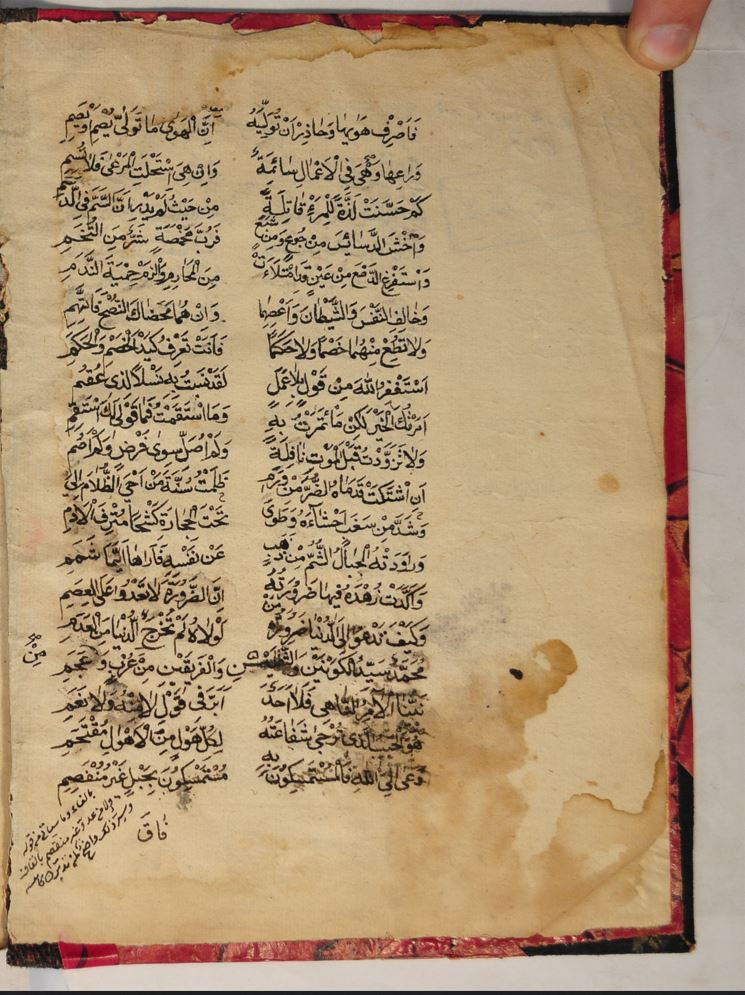 فَاصْرِفْ هَوٰيهَا وَحَاذِرْ اَنْ تُوَلِّيَهُ اِنَّ الْهَوٰى مَا تَوَلّٰى يُصْمِ اَوْ يَصِمِ
وَرَاعِهَا وَهْيَ فِي الْاَعْمَالِ سَائِمَةٌ وَاِنْ هِيَ اسْتَحْلَتِ الْمَرْعٰى فَلَا تُسِمِ
كَمْ حَسَّنَتْ لَذَّةً لِلْمَرْءِ قَاتِلَةً مِنْ حَيْثُ لَمْ يَدْرِ اَنَّ السَّمَّ فِي الدَّسَمِ
وَاخْشَ الدَّسَائِسَ مِنْ جُوعٍ وَمِنْ شَبَعٍ فَرُبَّ مَخْمَصَةٍ شَرٌّ مِنَ التُّخَمِ
وَاسْتَفْرِغِ الدَّمْعَ مِنْ عَيْنٍ قَدِ امْتَلَأَتْ مِنَ الْمَحَارِمِ وَالْزَمْ حِمْيَةَ النَّدَمِ
وَخَالِفِ النَّفْسَ وَالشَّيْطَانَ وَاعْصِهِمَا وَاِنْ هُمَا مَحَضَاكَ النُّصْحَ فَاتَّهِمِ
وَلَا تُطِعْ مِنْهُمَا خَصْمًا وَلَا حَكَمًا فَاَنْتَ تَعْرِفُ كَيْدَ الْخَصْمِ وَالْحَكَمِ
اَسْتَغْفِرُ اللّٰهَ مِنْ قَوْلٍ بِلَا عَمَلٍ لَقَدْ نَسَبْتُ بِهِ نَسْلًا لِذِي عُقُمِ
اَمَرْتُكَ الْخَيْرَ لٰكِنْ مَا ئْتَمَرْتُ بِهِ وَمَا اسْتَقَمْتُ فَمَا قَوْلِي لَكَ اسْتَقِمِ
وَلَا تَزَوَّدْتُ قَبْلَ الْمَوْتِ نَافِلَةً وَلَمْ اُصَلِّ سِوٰى فَرْضٍ وَلَمْ اَصُمِ
اَنِ اشْتَكَتْ قَدَمَاهُ الضُّرَّ مِنْ وَرَمِ ظَلَمْتُ سُنَّةَ مَنْ اَحْيَ الظَّلَامَ اِلٰى
وَشَدَّ مِنْ سَغَبٍ اَحْشَاءَهُ وَطَوٰى تَحْتَ الْحِجَارَةِ كَشْحًا مُتْرَفَ الْاَدَمِ
وَرَاوَدَتْهُ الْجِبَالُ الشُّمُّ مِنْ ذَهَبٍ عَنْ نَفْسِهِ فَاَرَاهَا اَيَّمَا شَمَمِ
وَاَكَّدَتْ زُهْدَهُ فِيهَا ضَرُورَتُهُ اِنَّ الضَّرُورَةَ لَا تَعْدُوا عَلَى الْعِصَمِ
وَكَيْفَ تَدْعُو اِلَى الدُّنْيَا ضَرُورَةُ مَنْ لَوْلَاهُ لَمْ تُخْرَجِ الدُّنْيَا مِنَ الْعَدَمِ
مُحَمَّدٌ سَيِّدُ الْكَوْنَيْنِ وَالثَّقَلَيْنِ وَالْفَرِيقَيْنِ مِنْ عُرْبٍ وَعَجَمِ
مِنْ
نَبِيُّنَا الْاٰمِرُ النَّاهِي فَلَا اَحَدٌ اَبَرَّ فِي قَوْلِ لَا مِنْهُ وَلَا نَعَمِ
هُوَ الْحَبِيبُ الَّذِي تُرْجٰى شَفَاعَتُهُ لِكُلِّ هَوْلٍ مِنَ الْاَهْوَالِ مُقْتَحَمِ
دَعٰى اِلَى اللّٰهِ فَالْمُسْتَمْسِكُونَ بِهِ مُسْتَمْسِكُونَ بِحَبْلٍ غَيْرِ مُنْفَصِمِ
فَاقَ